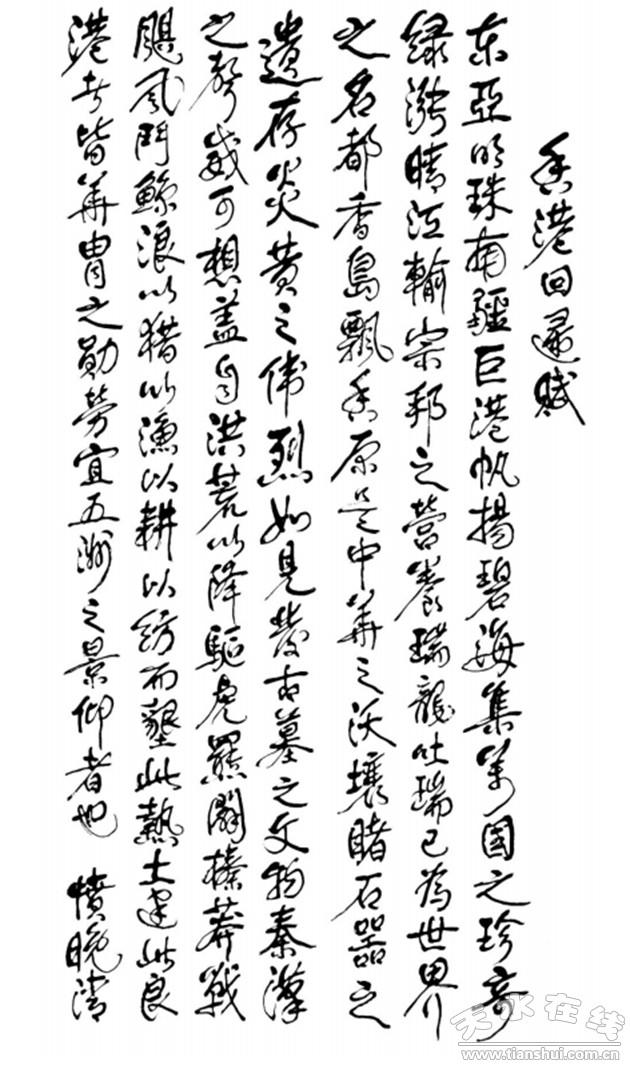 香港回归赋
东亚明珠南疆巨港帆扬碧海集万国之珍奇
绿涨晴江输宗邦之营养瑞龙吐瑞已为世界
之名都香岛飘香原是中华之沃壤睹石器之
遗存炎黄之伟烈如见发古墓之文物秦汉
之声威可想盖自洪荒以降驱虎罴闢榛莽战
飓风鬥鲸浪以猎以渔以耕以纺而墾此熱土建此良
港者皆华胄之勋劳宜五洲之景仰者也 愤晚清
天水在线
www.tianshui.com.cn